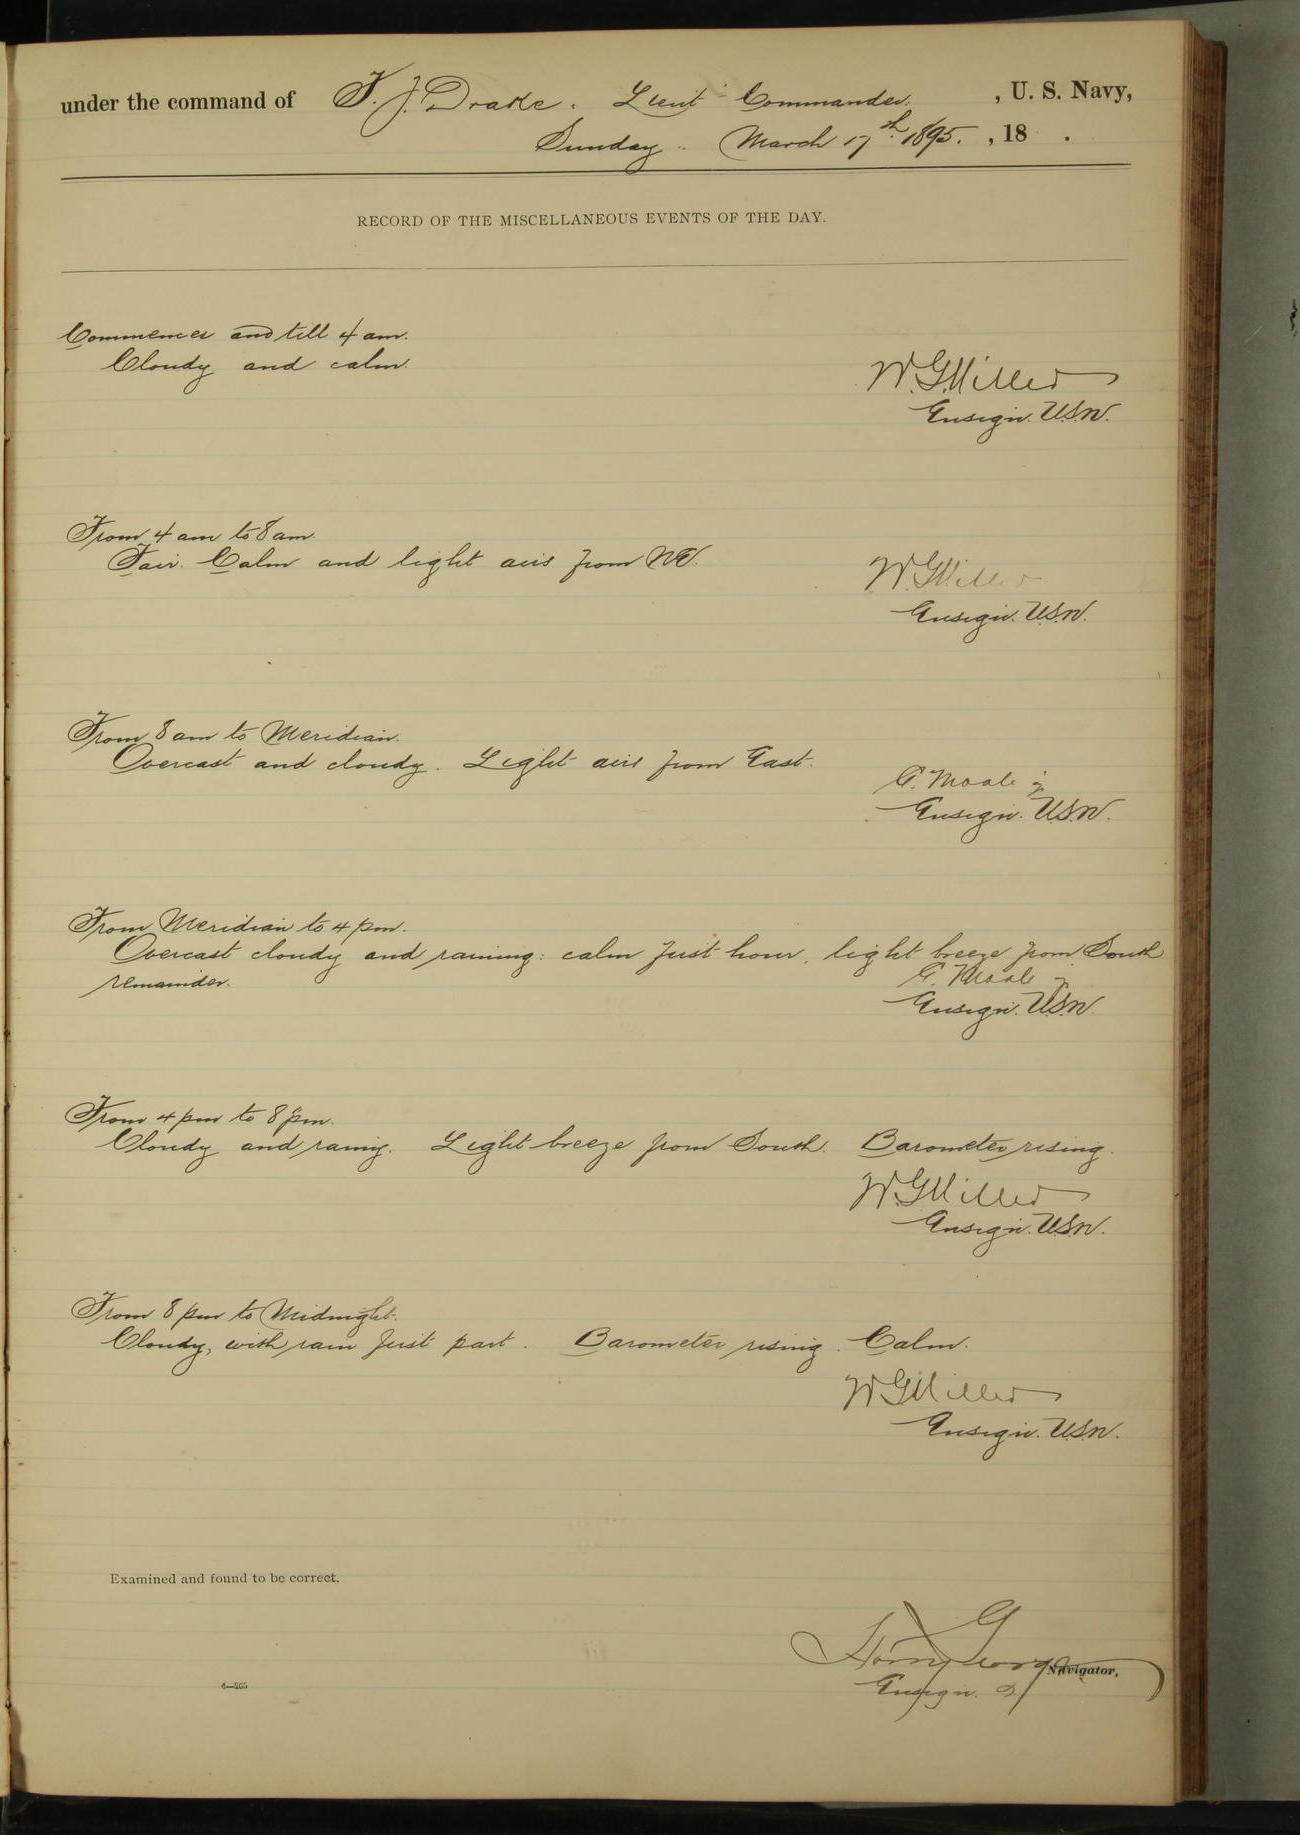 under the command of F. J. Drake. Lieut Commander. , U. S. Navy,
Sunday. March 17th 1895. , 18 .
RECORD OF THE MISCELLANEOUS EVENTS OF THE DAY.
Commences and till 4 am.
Cloudy and calm.
W. G. Miller
Ensign. U.S.N.
From 4 am to 8 am
Fair. Calm and light airs from NE.
W. G. Miller
Ensign. U.S.N.
From 8 am to Meridian.
Overcast and cloudy. Light airs from East.
E. Moale jr
Ensign. U.S.N.
From Meridian to 4 pm.
Overcast cloudy and raining: calm first hour, light breeze from South
remainder.
E. Moale jr
Ensign. U.S.N.
From 4 pm to 8 pm.
Cloudy and rainig. Light breeze from South. Barometer rising.
W. G. Miller
Ensign. U.S.N.
From 8 pm to Midnight.
Cloudy, with rain first part. Barometer rising. Calm.
W G Miller
Ensign. U.S.N.
Examined and found to be correct.
Harry George
Navigator.
Ensign.
4—205